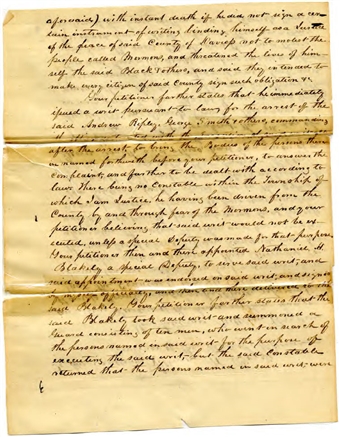 aforesaid) with instant death if he did not sign a cer-
tain instrument of writing binding himself as a Justice
of the peace of said County of Daviess not to molest the
people called Mormons, and threatened the lives of him
self the said Black & others, and said they intended to
make every citizen of said County sign such obligation &c
Your petitioner further states that he immediately
issued a writ Pursuant to law, for the arrest of the
said Andrew Ripley, George Smith & others, commanding
after the arrest to bring the bodies of the persons there
in named forthwith before your petitioner, to answer the
complaint, and further to be dealt with according to
law. There being no Constable within the Township of
which I am Justice, he having been driven from the
County by and through fear of the Mormons, and your
petitioner believing that said writ would not be ex
ecuted, unless a special Deputy was made for that purpose
Your petitioner then and there appointed Nathaniel H.
Blakely a special Deputy, to serve said writ; and
said appointment was endorsed on said writ, and signed
officially, and then and there delivered to the
said Blakely. Your petitioner further states that the
said Blakely took said writ and summoned a
Guard consisting of ten men, who went in search of
the persons named in said writ for the purpose of
executing the said writ, but the said Constable
returned that the persons named in said writ were